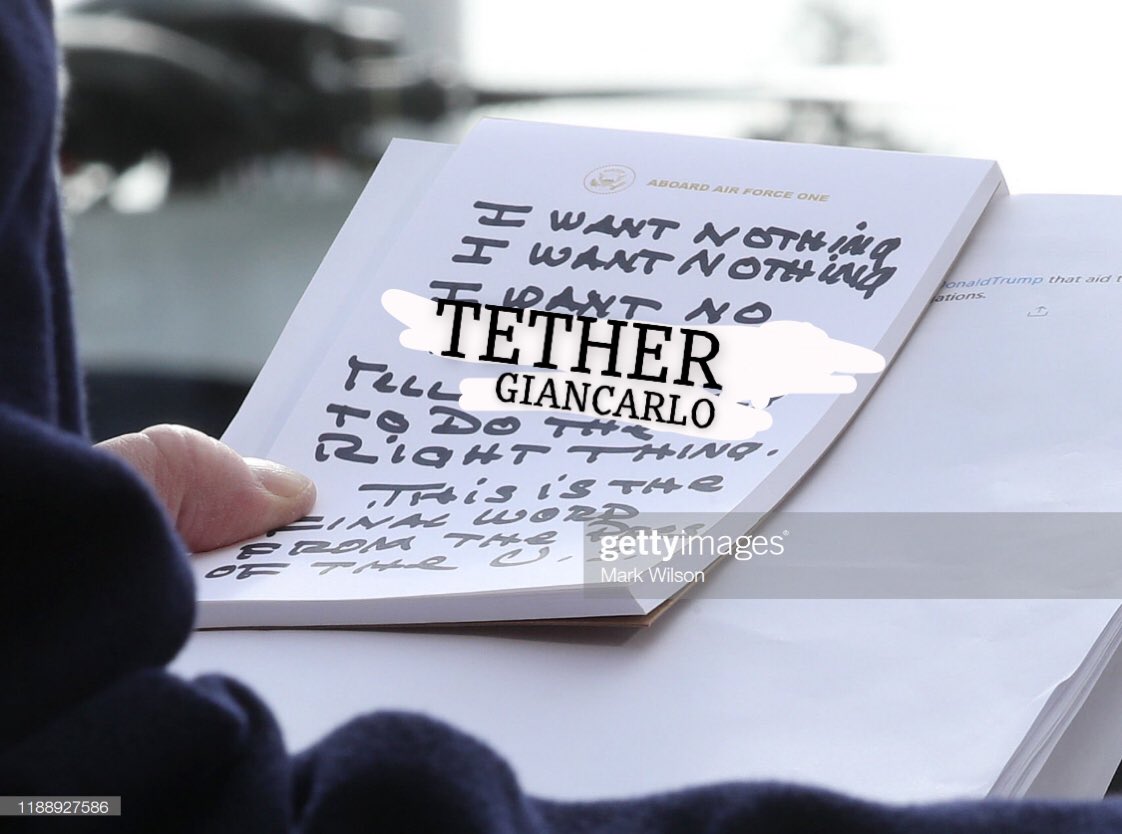 ABOARD AIR FORCE ONE
I WANT NOTHING
I WANT NOTHING
I WANT NO
TETHER
TELL
GIANCARLO
TO DO THE
RIGHT THING.
THIS IS THE
FINAL WORD
FROM THE PRES
OF THE U.S.
onaldTrump that aid t
ations.
gettyimages®
Mark Wilson
1188927586